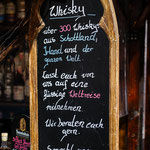 Whisky
über 300 Whiskys
aus Schottland,
Irland und der
ganzen Welt.
Lasst euch von
uns auf eine
flüssige Weltreise
mitnehmen
Wir beraten euch
gern.